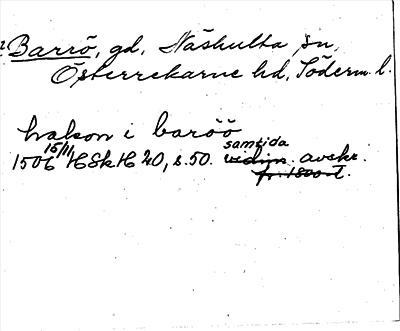 Barrö, gd, Näshulta sn,
Österrekarne hd, Söderm. l.
hakon i baröö
samtida
1506 15/11 HSkH 40, s. 50. vidim. avskr.
fr. 1800-t.